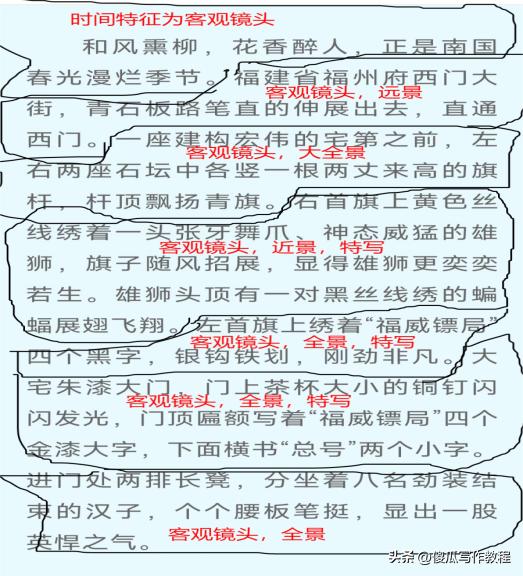 时间特征为客观镜头
和风熏柳，花香醉人，正是南国
春光漫烂季节。福建省福州府西门大
客观镜头，远景
街，青石板路笔直的伸展出去，直通
西门。一座建构宏伟的宅第之前，左
客观镜头，大全景
右两座石坛中各竖一根两丈来高的旗
杆，杆顶飘扬青旗。右首旗上黄色丝
线绣着一头张牙舞爪、神态威猛的雄
客观镜头，近景，特写
狮，旗子随风招展，显得雄狮更奕奕
若生。雄狮头顶有一对黑丝线绣的蝙
蝠展翅飞翔。左首旗上绣着“福威镖局”
客观镜头，全景，特写
四个黑字，银钩铁划，刚劲非凡。大
宅朱漆大门，门上茶杯大小的铜钉闪
客观镜头，全景，特写
闪发光，门顶匾额写着“福威镖局”四个
金漆大字，下面横书“总号”两个小字。
进门处两排长凳，分坐着八名劲装结
束的汉子，个个腰板笔挺，显出一股
客观镜头，全景
英悍之气。
头条 @傻瓜写作教程